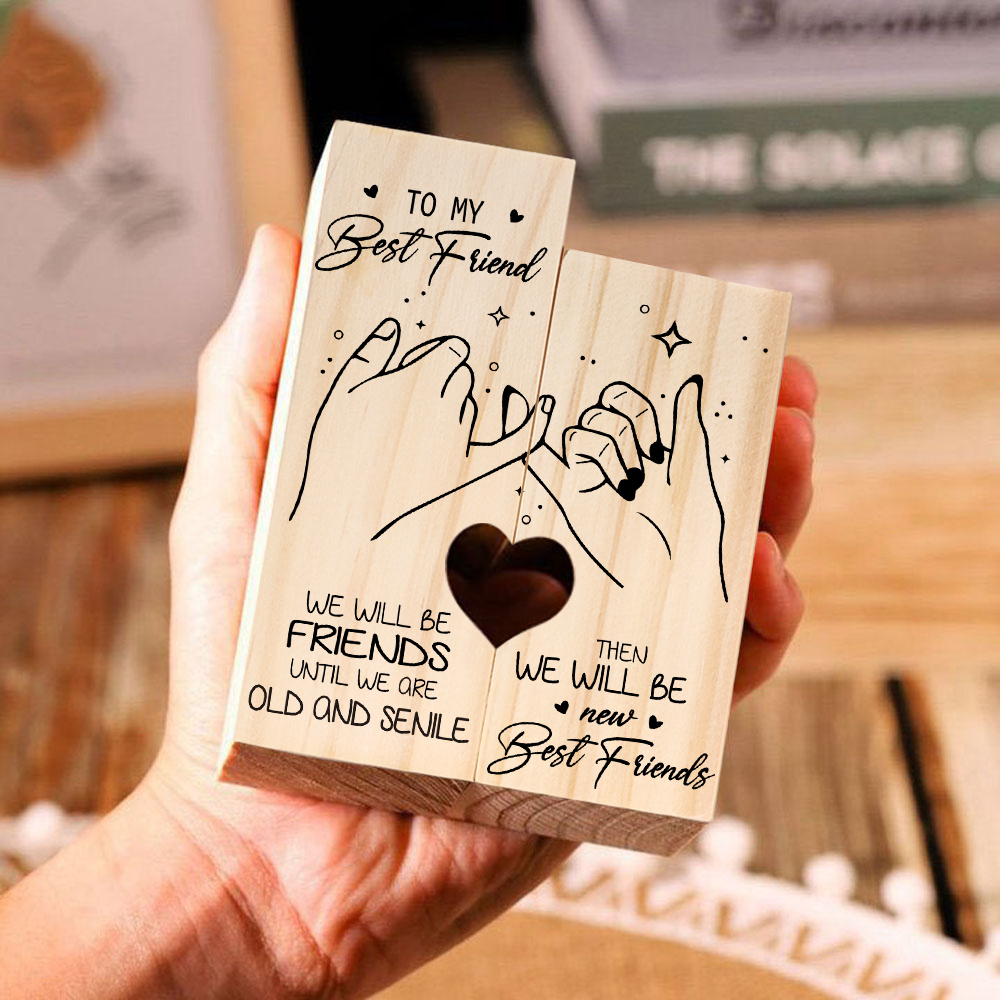 TO MY
Best Friend
WE WILL BE
FRIENDS
UNTIL WE ARE
OLD AND SENILE
THEN
WE WILL BE
new
Best Friends
THE SOLACE